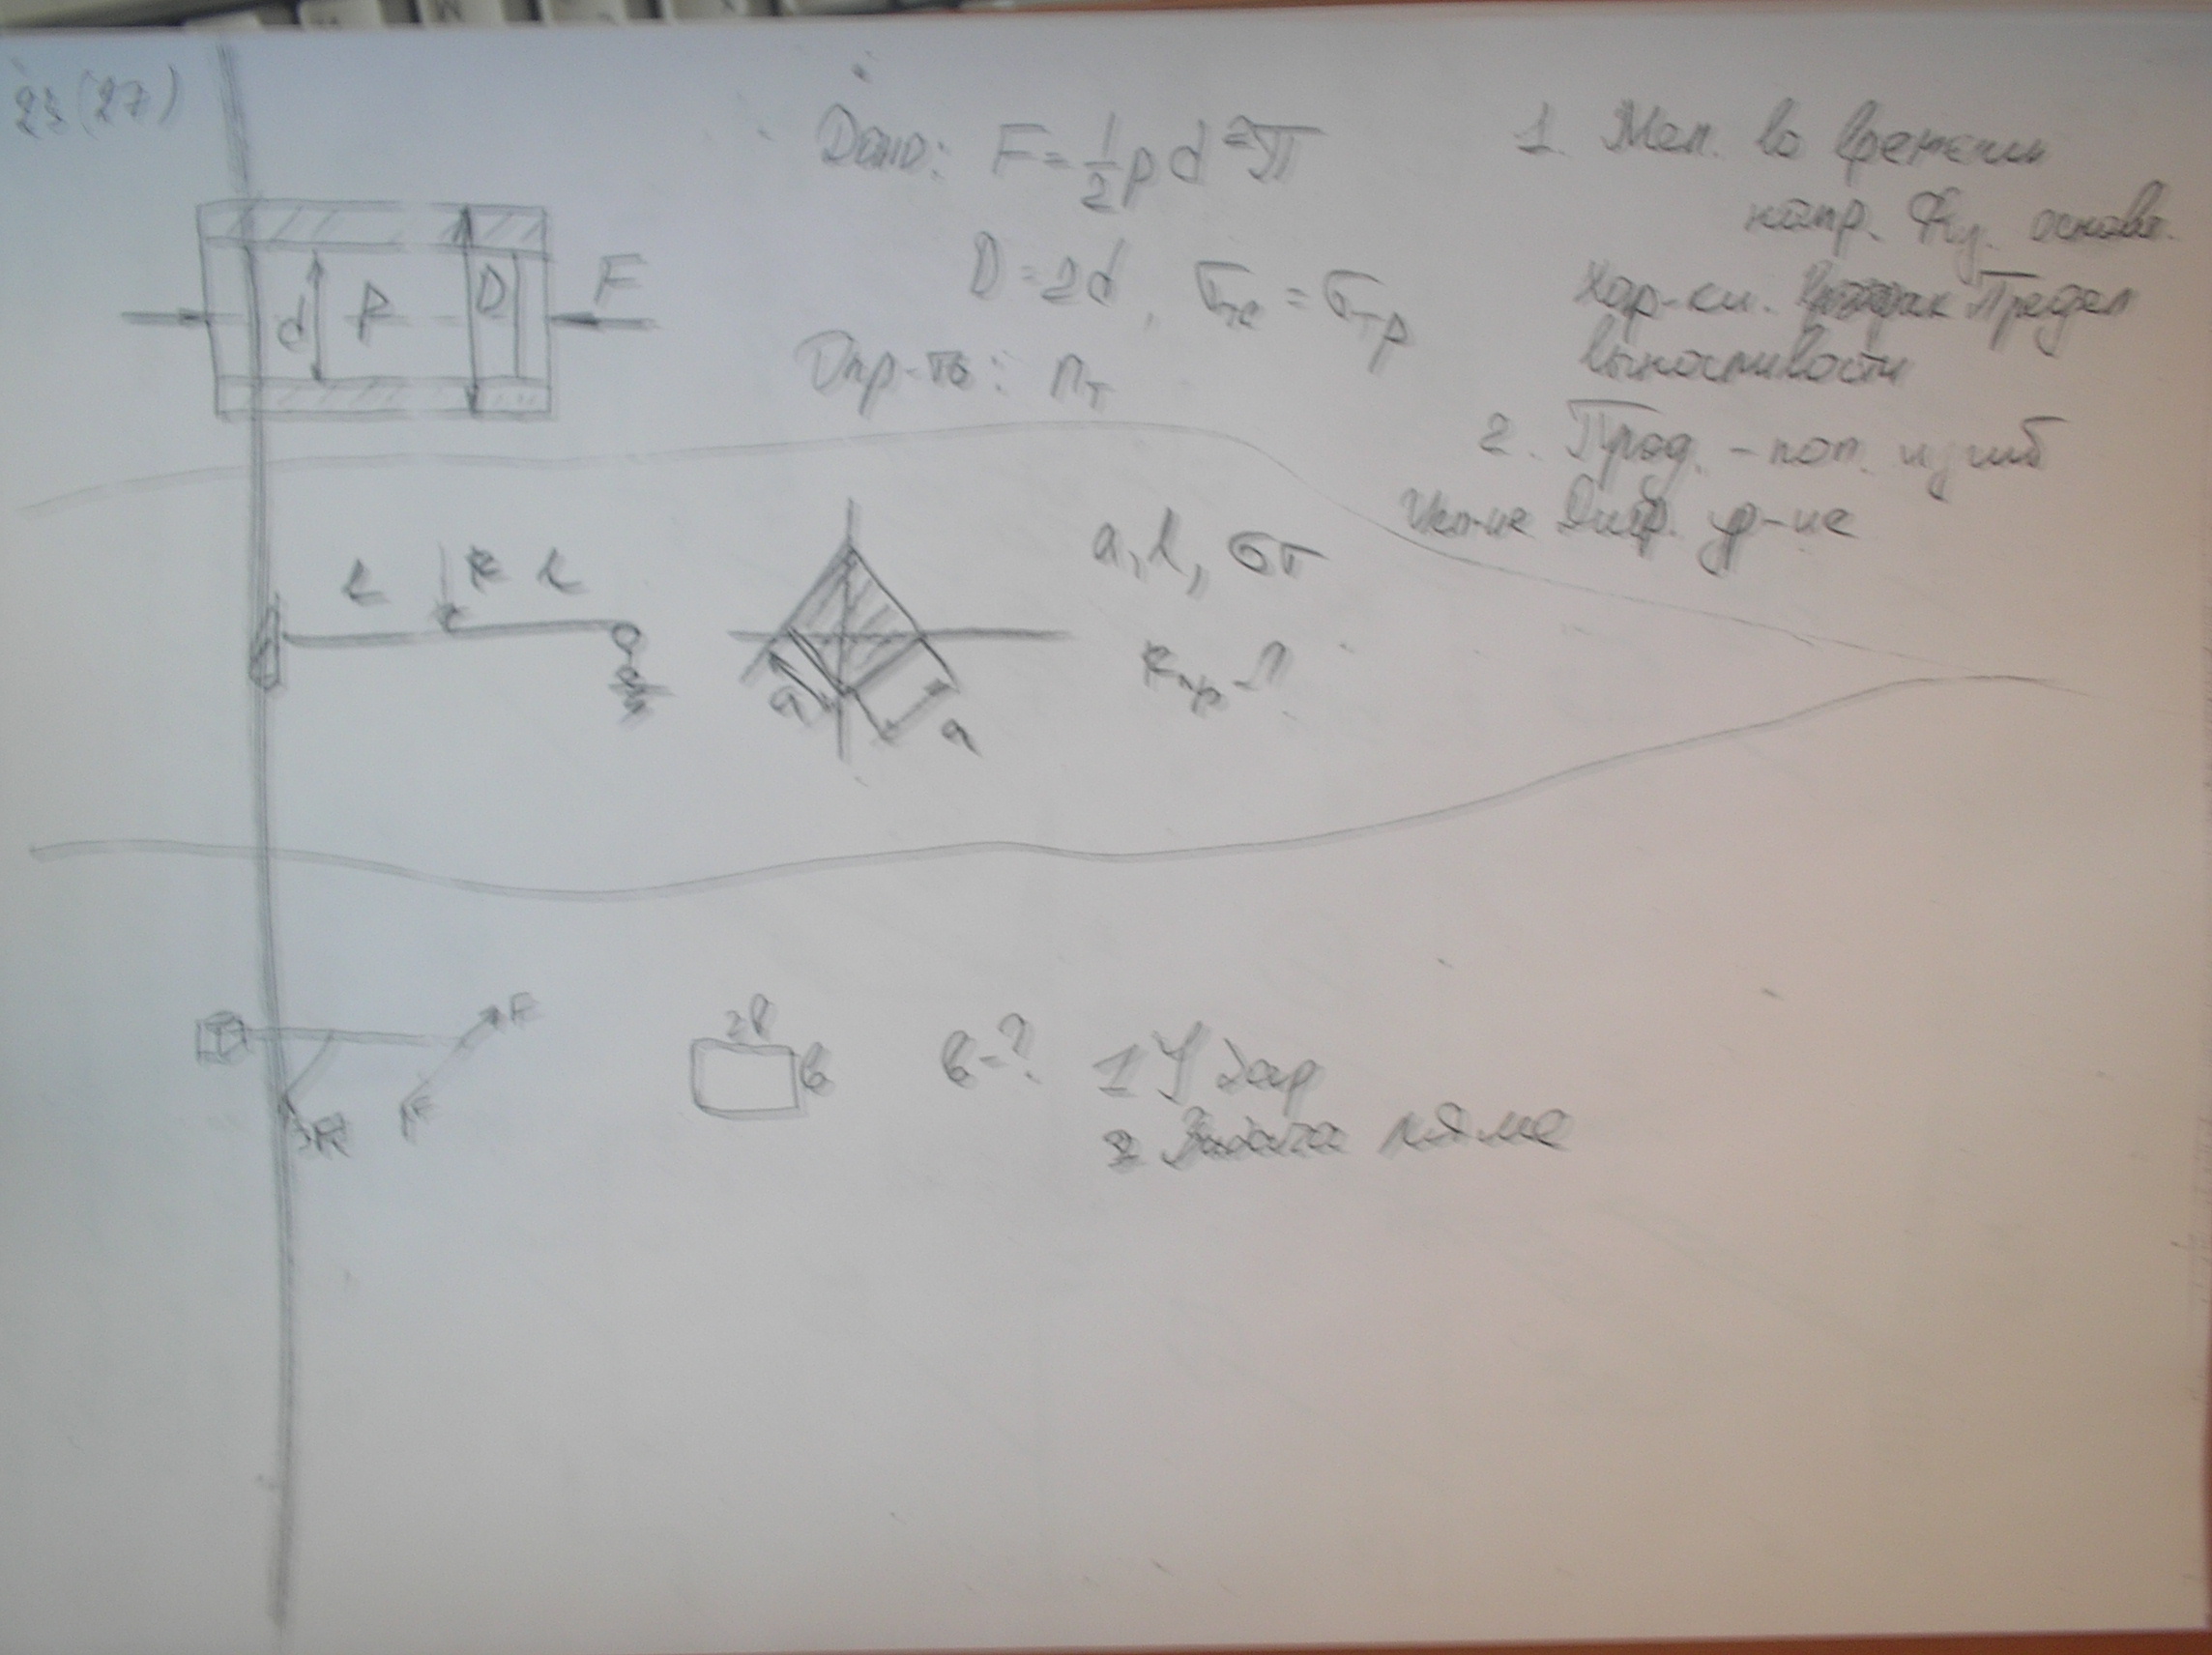 23(27)
Дано: F = 1/2 p d² π
D = 2d, σтс = σтр
Опр-ть: nт
d P D F
1. Мал. во времени
напр. Яу. основ.
Хар-ки. Предел
выносливости
2. Прод. - поп. изгиб
Диф. ур-ие
L F L
a, l, σт
Fпр - ?
a a
F
F
2b
b
b - ?
1 Удар
2 Задача ляме